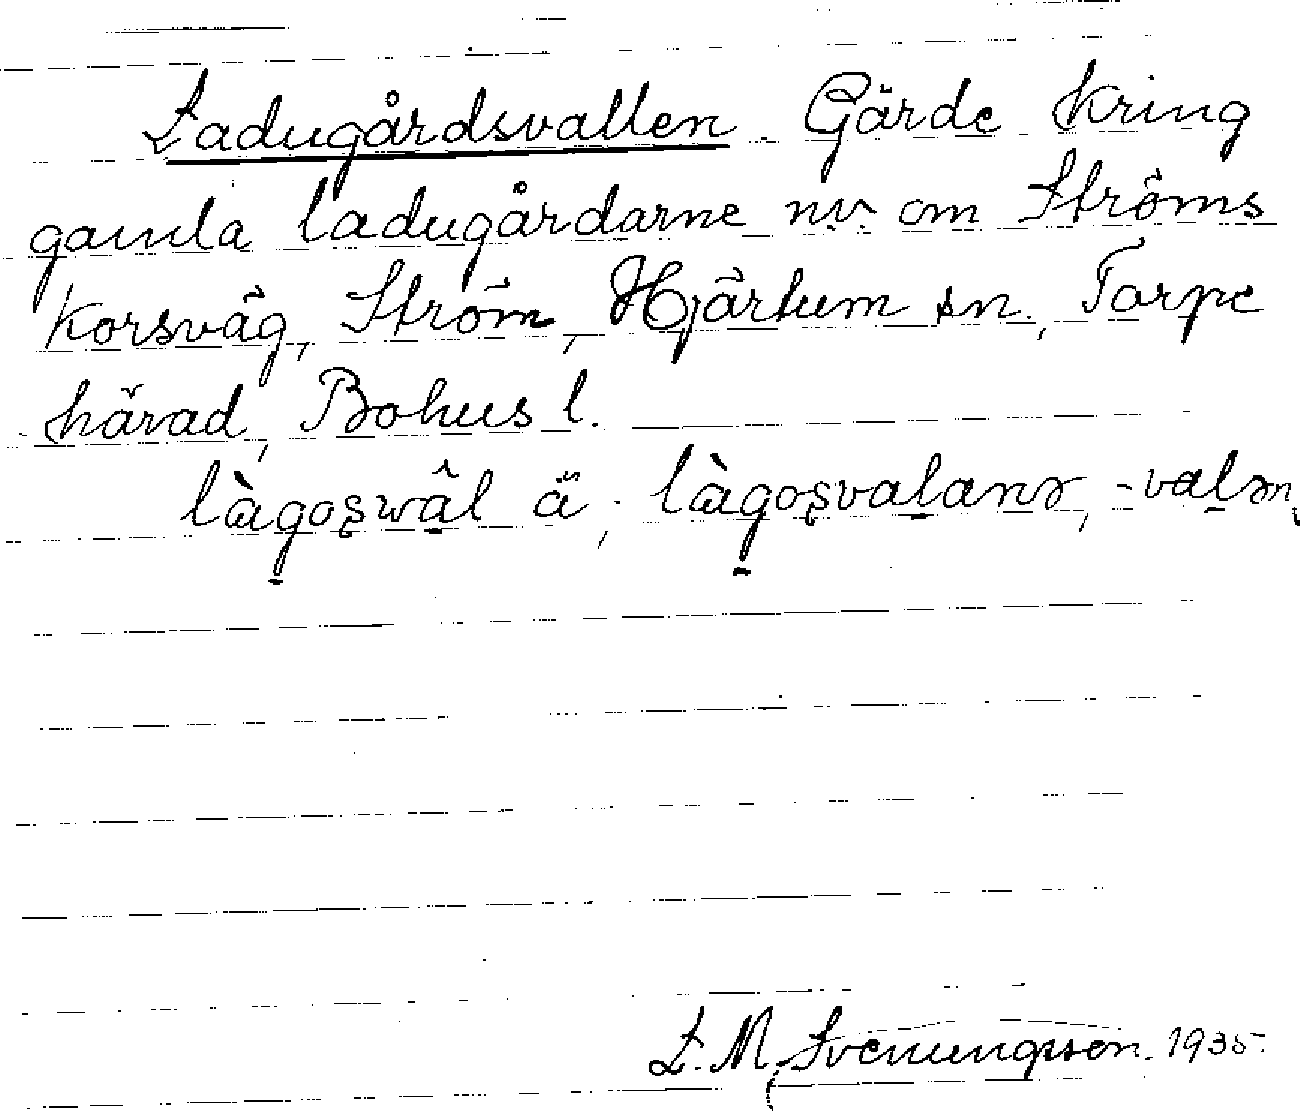 Ladugårdsvallen. Gärde kring
gamla ladugårdarne nv. om Ströms
korsväg, Ström, Hjärtum sn., Torpe
härad, Bohus l.
làgoşwâl ä, làgoşvalanɘ, -valɘn,
L. M. Svenungsson. 1935.